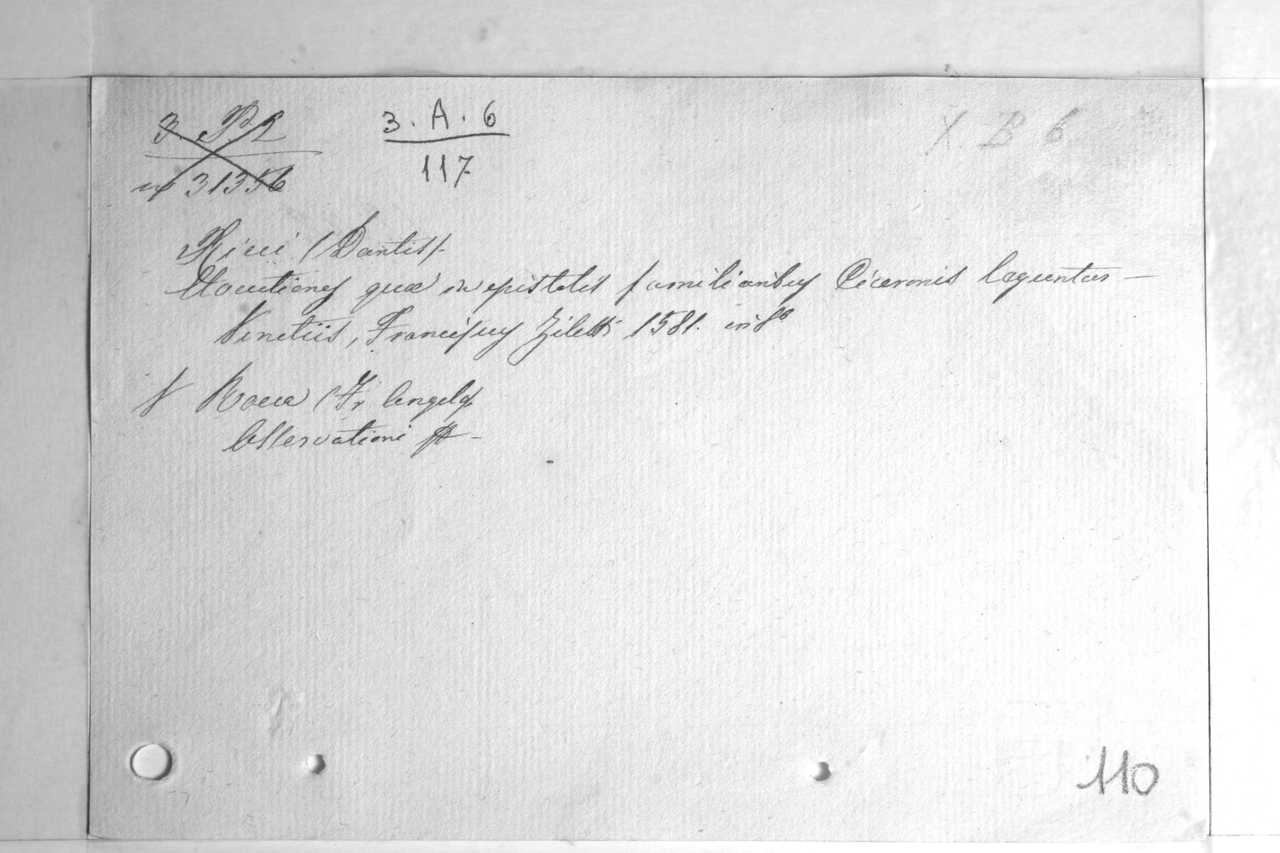 3. A. 6
117
X. B 6
31356
Ricci (Dantis).
Locutiones quæ in epistolis familiaribus Ciceronis leguntur —
Venetiis, Franciscus Ziletti 1581. in 8º
V Rocca (Fr Angelo)
Osservationi
110